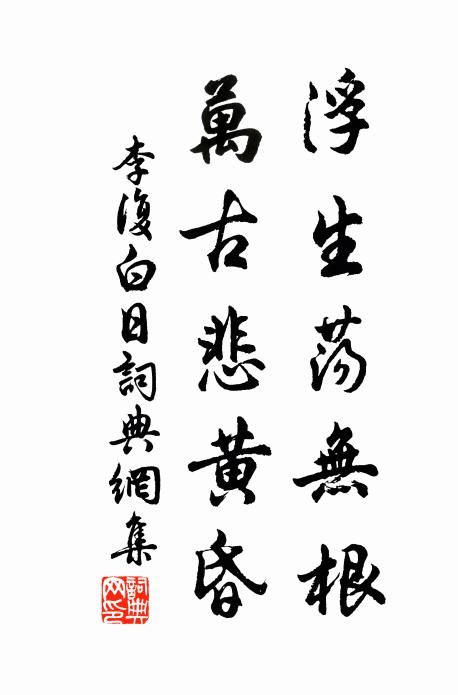 浮生蕩無根
萬古悲黃昏
李復白日詞典網集
詞典網印